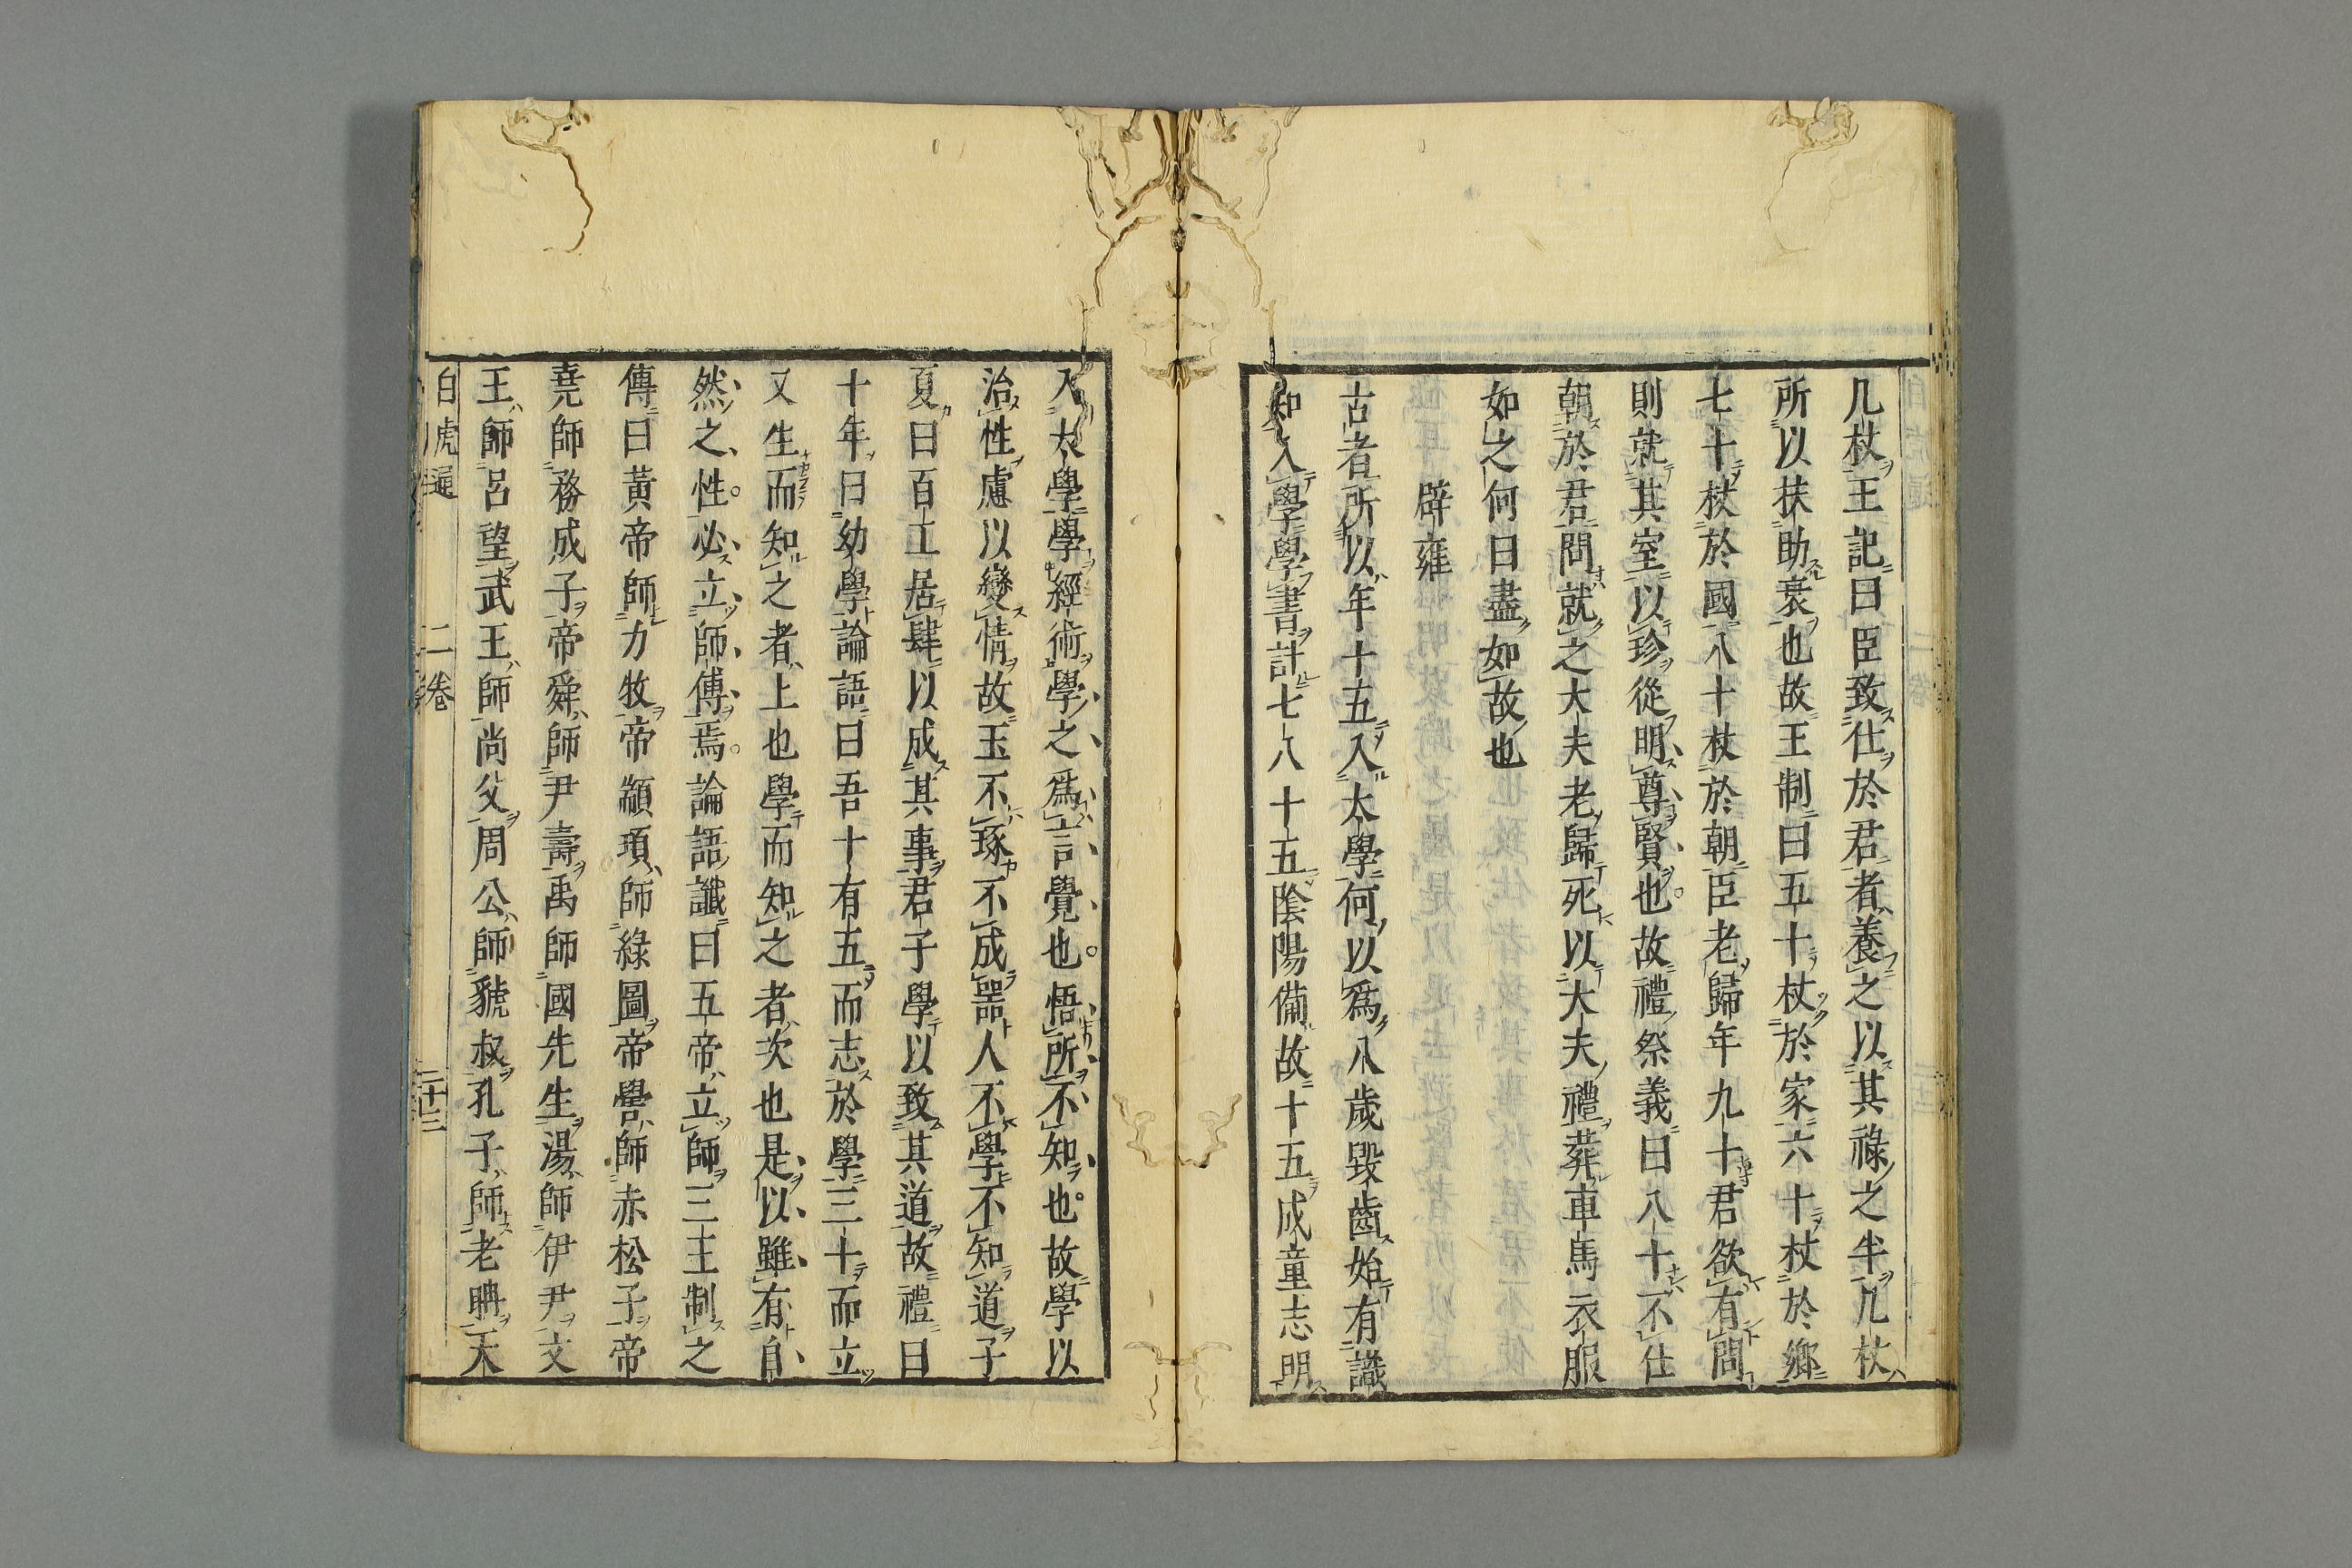 几杖王記曰臣致仕於君者養之以其祿之半几杖
所以扶助衰也故王制曰五十杖於家六十杖於鄉
七十杖於國八十杖於朝臣老歸年九十君欲有問
則就其室以珍從明尊賢也故禮祭義曰八十不仕
朝於君問就之大夫老歸死以大夫禮葬車馬衣服
如之何曰盡如故也
辟雍
古者所以年十五入太學何以爲八歲毀齒始有識
知入學學書計七八十五陰陽備故十五成童志明
入太學學經術學之爲言覺也悟所不知也故學以
治性慮以變情故玉不琢不成器人不學不知道子
夏曰百工居肆以成其事君子學以致其道故禮曰
十年曰幼學論語曰吾十有五而志於學三十而立
又生而知之者上也學而知之者次也是以雖有自
然之性必立師傅焉論語讖曰五帝立師三王制之
傳曰黃帝師力牧帝顓頊師綠圖帝嚳師赤松子帝
堯師務成子帝舜師尹壽禹師國先生湯師伊尹文
王師呂望武王師尚父周公師虢叔孔子師老聃天
白虎通 二卷 二十三